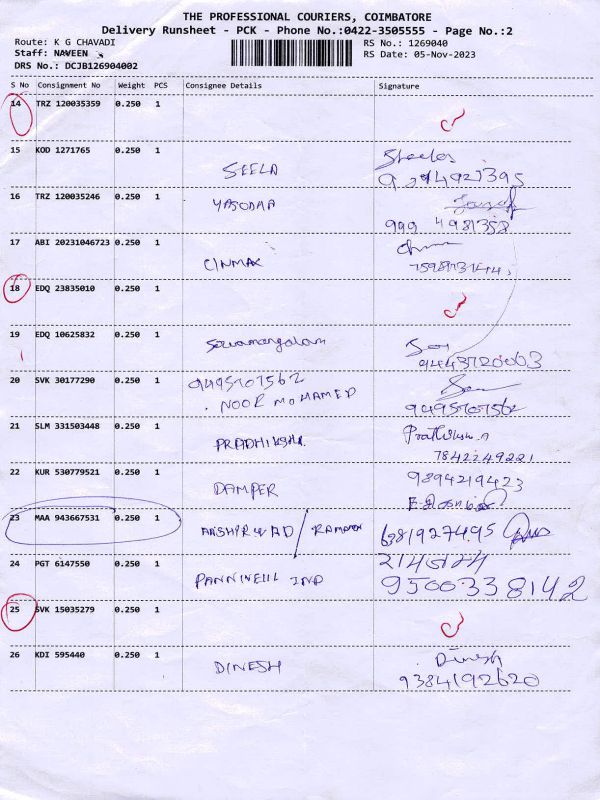 THE PROFESSIONAL COURIERS, COIMBATORE
Delivery Runsheet - PCK - Phone No.:0422-3505555 - Page No.:2
Route: K G CHAVADI RS No.: 1269040
Staff: NAVEEN RS Date: 05-Nov-2023
DRS No.: DCJB126904002
S No Consignment No Weight PCS Consignee Details Signature
14 TRZ 120035359 0.250 1
15 KOD 1271765 0.250 1
SEELA
16 TRZ 120035246 0.250 1
YASODHA
17 ABI 20231046723 0.250 1
CINMAX
18 EDQ 23835010 0.250 1
19 EDQ 10625832 0.250 1
9443720003
20 SVK 30177290 0.250 1 9495707562
NOOR MOHAMED 9495707562
21 SLM 331503448 0.250 1
PRADHIKSHA 7842249221
22 KUR 530779521 0.250 1 9894219423
DAMPER
23 MAA 943667531 0.250 1
AASHIRWAD /
24 PGT 6147550 0.250 1
IND 9500338142
25 SVK 15035279 0.250 1
26 KDI 595440 0.250 1 Dinesh
DINESH 9384192620